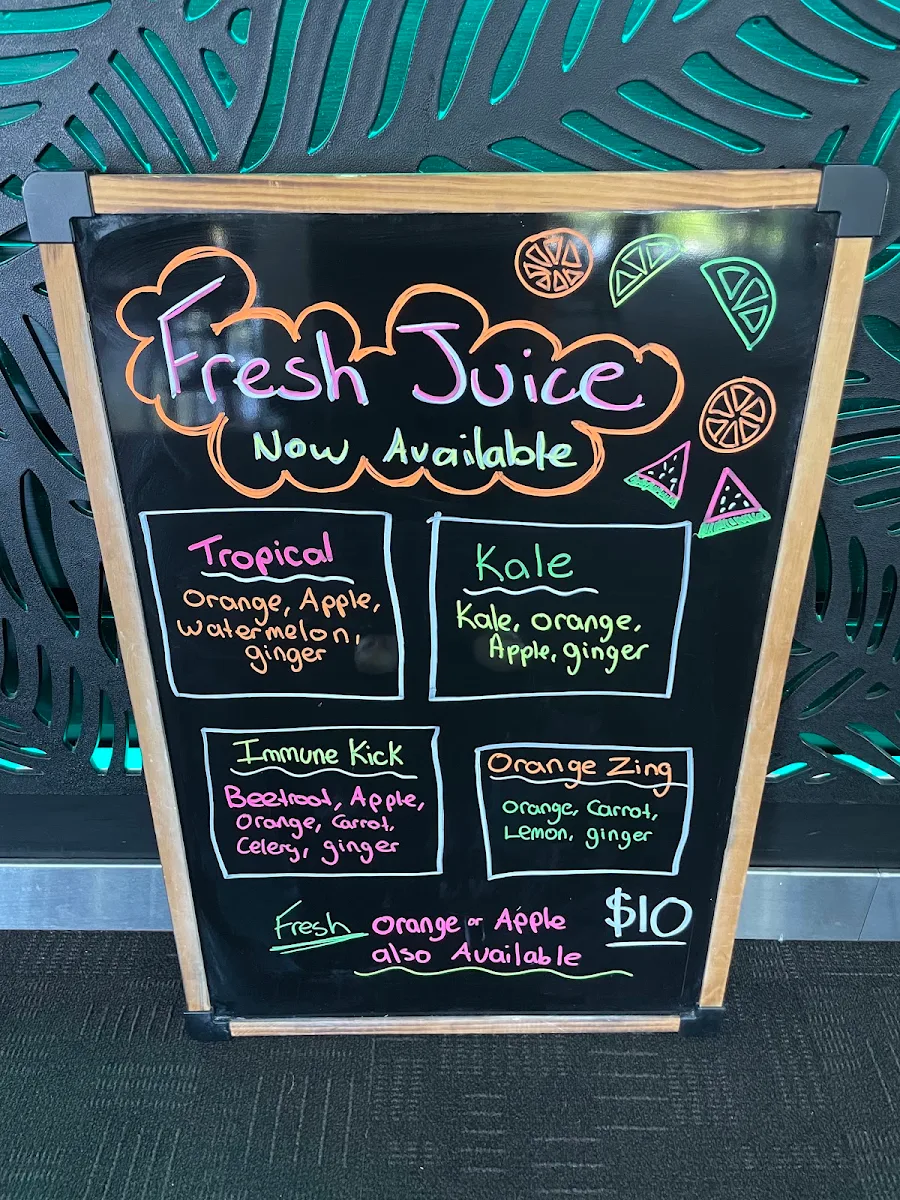 Fresh Juice
Now Available
Tropical
Orange, Apple,
Watermelon,
ginger
Kale
Kale, orange,
Apple, ginger
Immune Kick
Beetroot, Apple,
Orange, Carrot,
Celery, ginger
Orange Zing
Orange, Carrot,
Lemon, ginger
Fresh Orange or Apple
also Available
$10